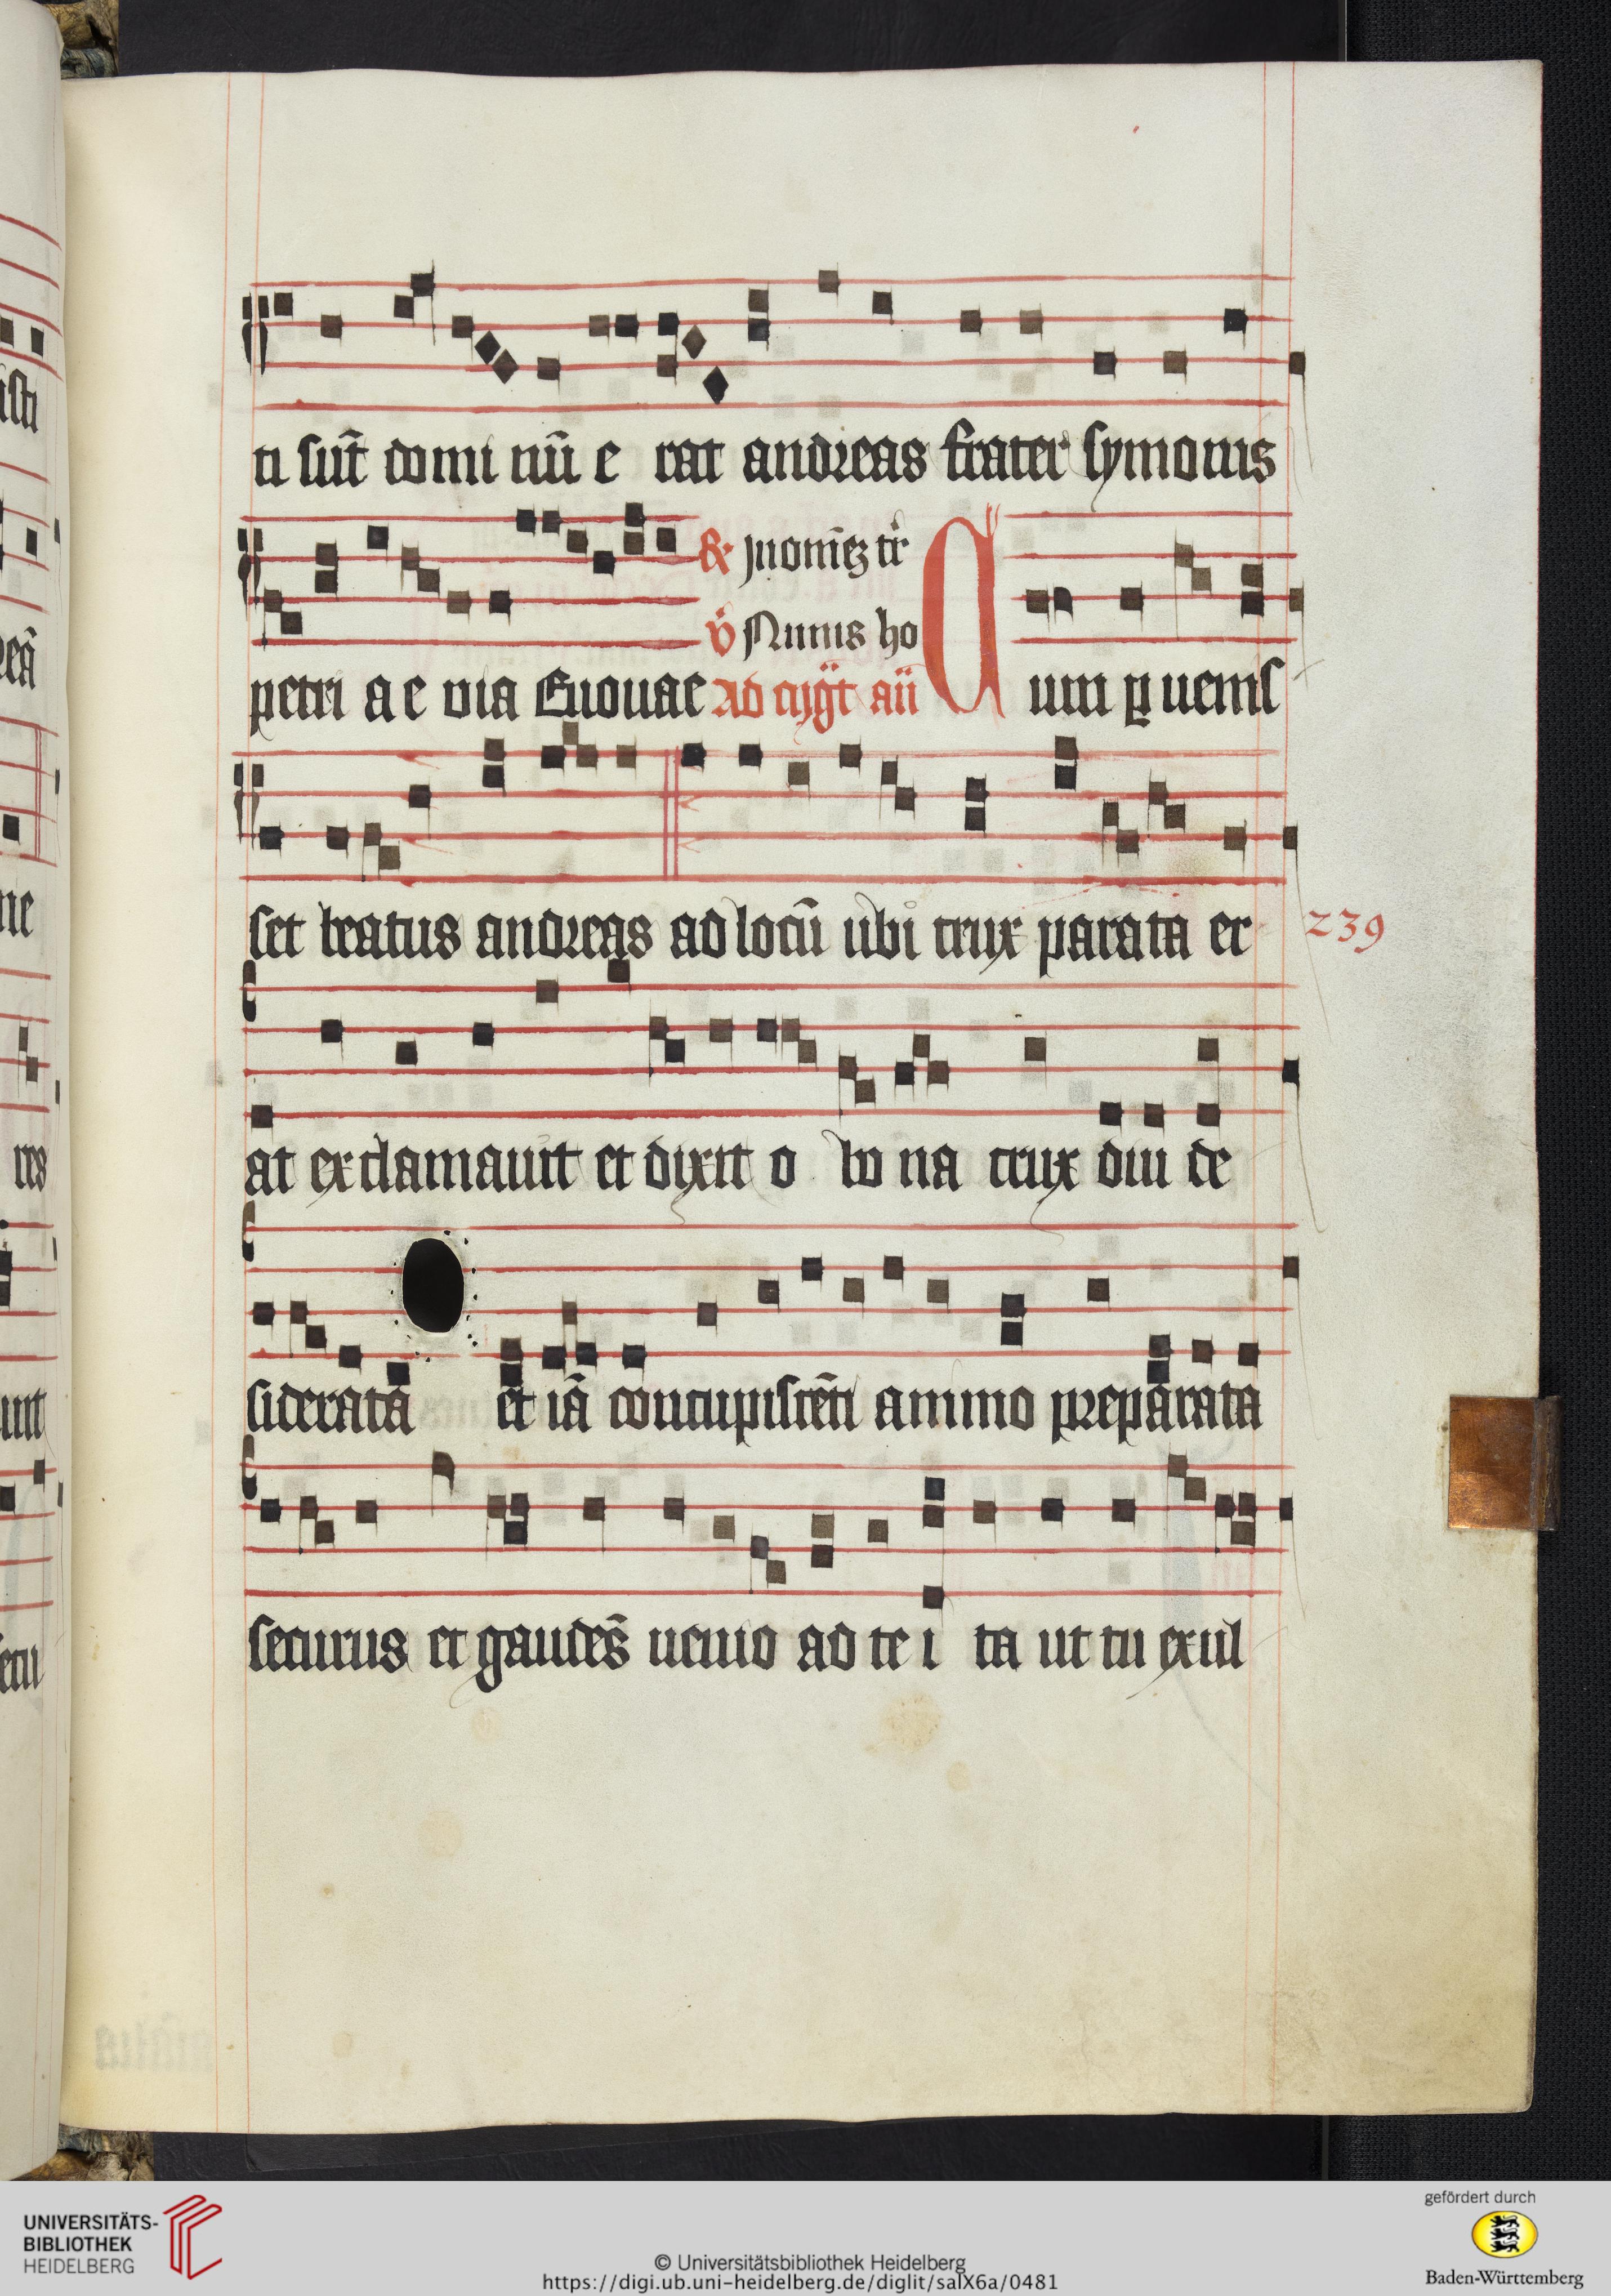 ti sūt domi nū e rat andreas frater symonis
℟ Jn om̄eȝ tr̄
℣ Nimis ho
petri a e via Euouae Ad cyḡt añ Cum ꝑ uenis
set beatus andreas ad locū ubi crux parata er
239
at exclamauit et dixit o bo na crux diu de
siderata et iā concupiscēti animo preparata
securus et gaudēs uenio ad te i ta ut tu exul
UNIVERSITÄTS-
BIBLIOTHEK
HEIDELBERG
© Universitätsbibliothek Heidelberg
https://digi.ub.uni-heidelberg.de/diglit/salX6a/0481
gefördert durch
Baden-Württemberg